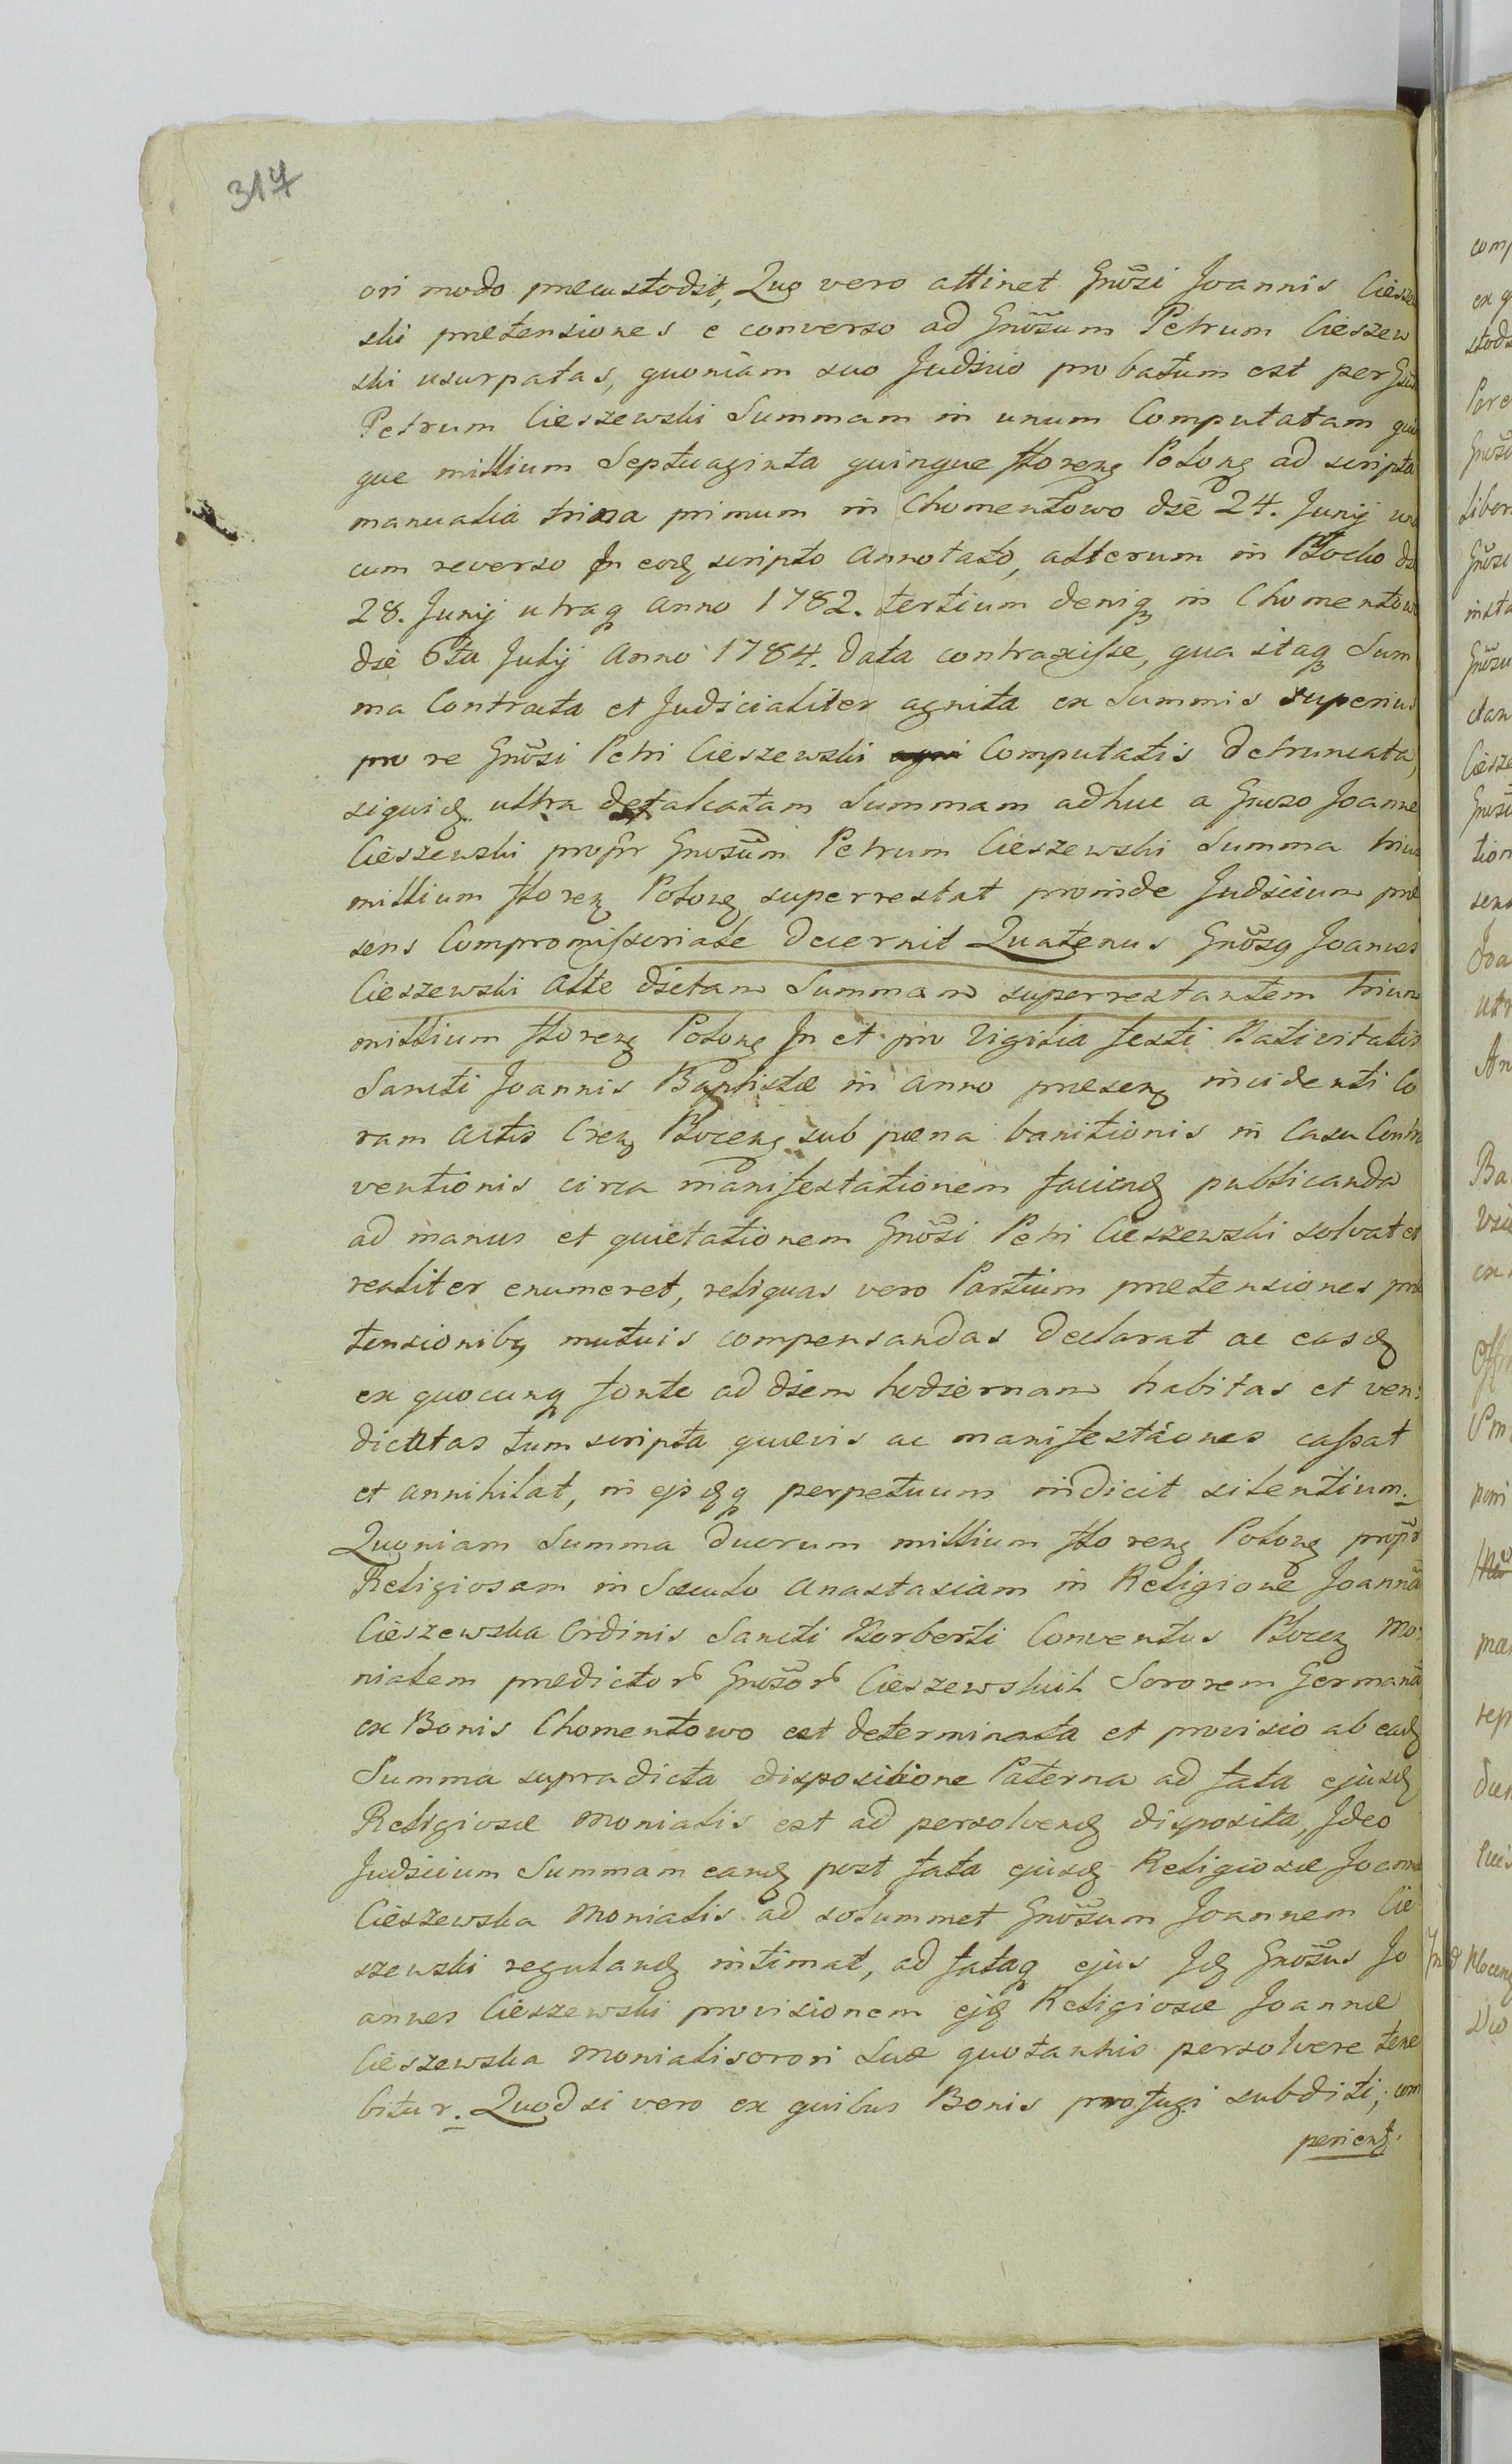 317
ori modo præcustodit, Quo vero attinet Gnősi Joannis Ciesze
ski prætensiones e converso ad Gnősum Petrum Cieszew
ski usurpatas, quoniam suo Judicio probatum est per Gnő
Petrum Cieszewski Summam in unum Computatam quin
que millium Septuaginta quinque floreng Polong ad scripta
manualia trina primum in Chomentowo die 24. Junij una
cum reverso In eodg scripto annotato, alterum in Płocko die
28. Junij utraq anno 1782. tertium deniq in Chomentowo
die 6ta Julij anno 1784. data contraxisse, qua itaq Sum
ma Contracta et Judicialiter agnita ex Summis superius
pro re Gnősi Petri Cieszewski Computatis detruncata,
siquidg ultra defalcatam Summam adhuc a Gnoso Joanne
Cieszewski propr Gnosum Petrum Cieszewski Summa trium
millium floreng Polong superrestat proinde Judicium præ
sens Compromissoriale decernit Quatenus Gnősq Joannes
Cieszewski alte dictam Summam superrestantem trium
millium floreng Polong In et pro Vigilia festi Nativitatis
Sancti Joannis Baptistæ in anno præseng incidenti Co
ram actis Creng Płoceng sub pœna banitionis in Casu Contra
ventionis circa manifestationem faciendg publicanda
ad manus et quietationem Gnősi Petri Cieszewski solvat et
realiter enumeret, reliquas vero Partium prætensiones præ
tensionibq mutuis compensandas declarat ac easdg
ex quocunq fonte ad diem hodiernam habitas et ven:
dicatas tum scripta quævis ac manifestãones cassat
et annihilat, in ejsdgq perpetuum indicit silentium.
Quoniam Summa duorum millium floreng Polong propr
Religiosam in Sæculo Anastasiam in Religione Joannã
Cieszewska Ordinis Sancti Norberti Conventus Płoceng Mo:
nialem prædictorb Gnősorb Cieszewskich Sororem Germanã
ex Bonis Chomentowo est determinata et provisio ab eadg
Summa supradicta dispositione Paterna ad fata ejusdg
Religiosæ Monialis est ad persolvendg disposita, Ideo
Judicium Summam eandg post fata ejusdg Religiosæ Joannæ
Cieszewska Monialis ad solummet Gnősum Joannem Cie
szewski regulandg intimat, ad fataq ejus Idg Gnősus Jo
annes Cieszewski provisionem ejdg Religiosæ Joannæ
Cieszewska Moniali sorori suæ quotannis persolvere tene
bitur. Quod si vero ex quibus Bonis profugi subditi, com
perientg.